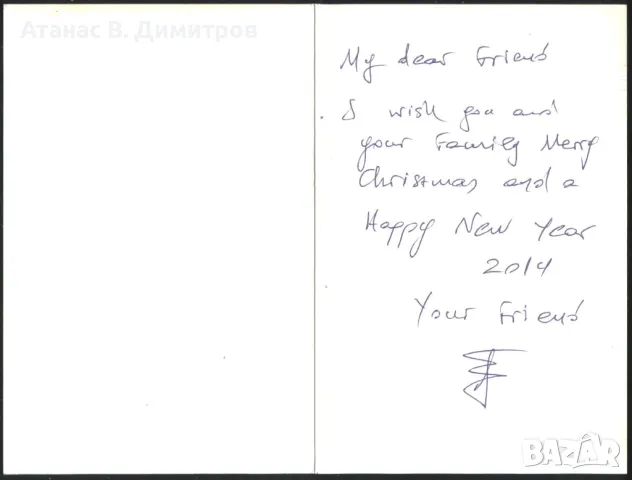 Атанас В. Димитров
My dear Friend
I wish you and
your Family Merry
Christmas and a
Happy New Year
2014
Your Friend
BAZAR